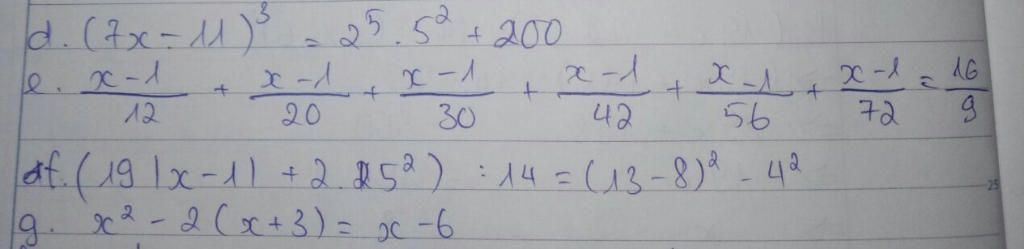 d. (7x - 11)³ = 2⁵ . 5² + 200
e. (x-1)/12 + (x-1)/20 + (x-1)/30 + (x-1)/42 + (x-1)/56 + (x-1)/72 = 16/9
f. (19 |x - 1| + 2. 5²) : 14 = (13 - 8)² - 4²
g. x² - 2 (x+3) = x - 6